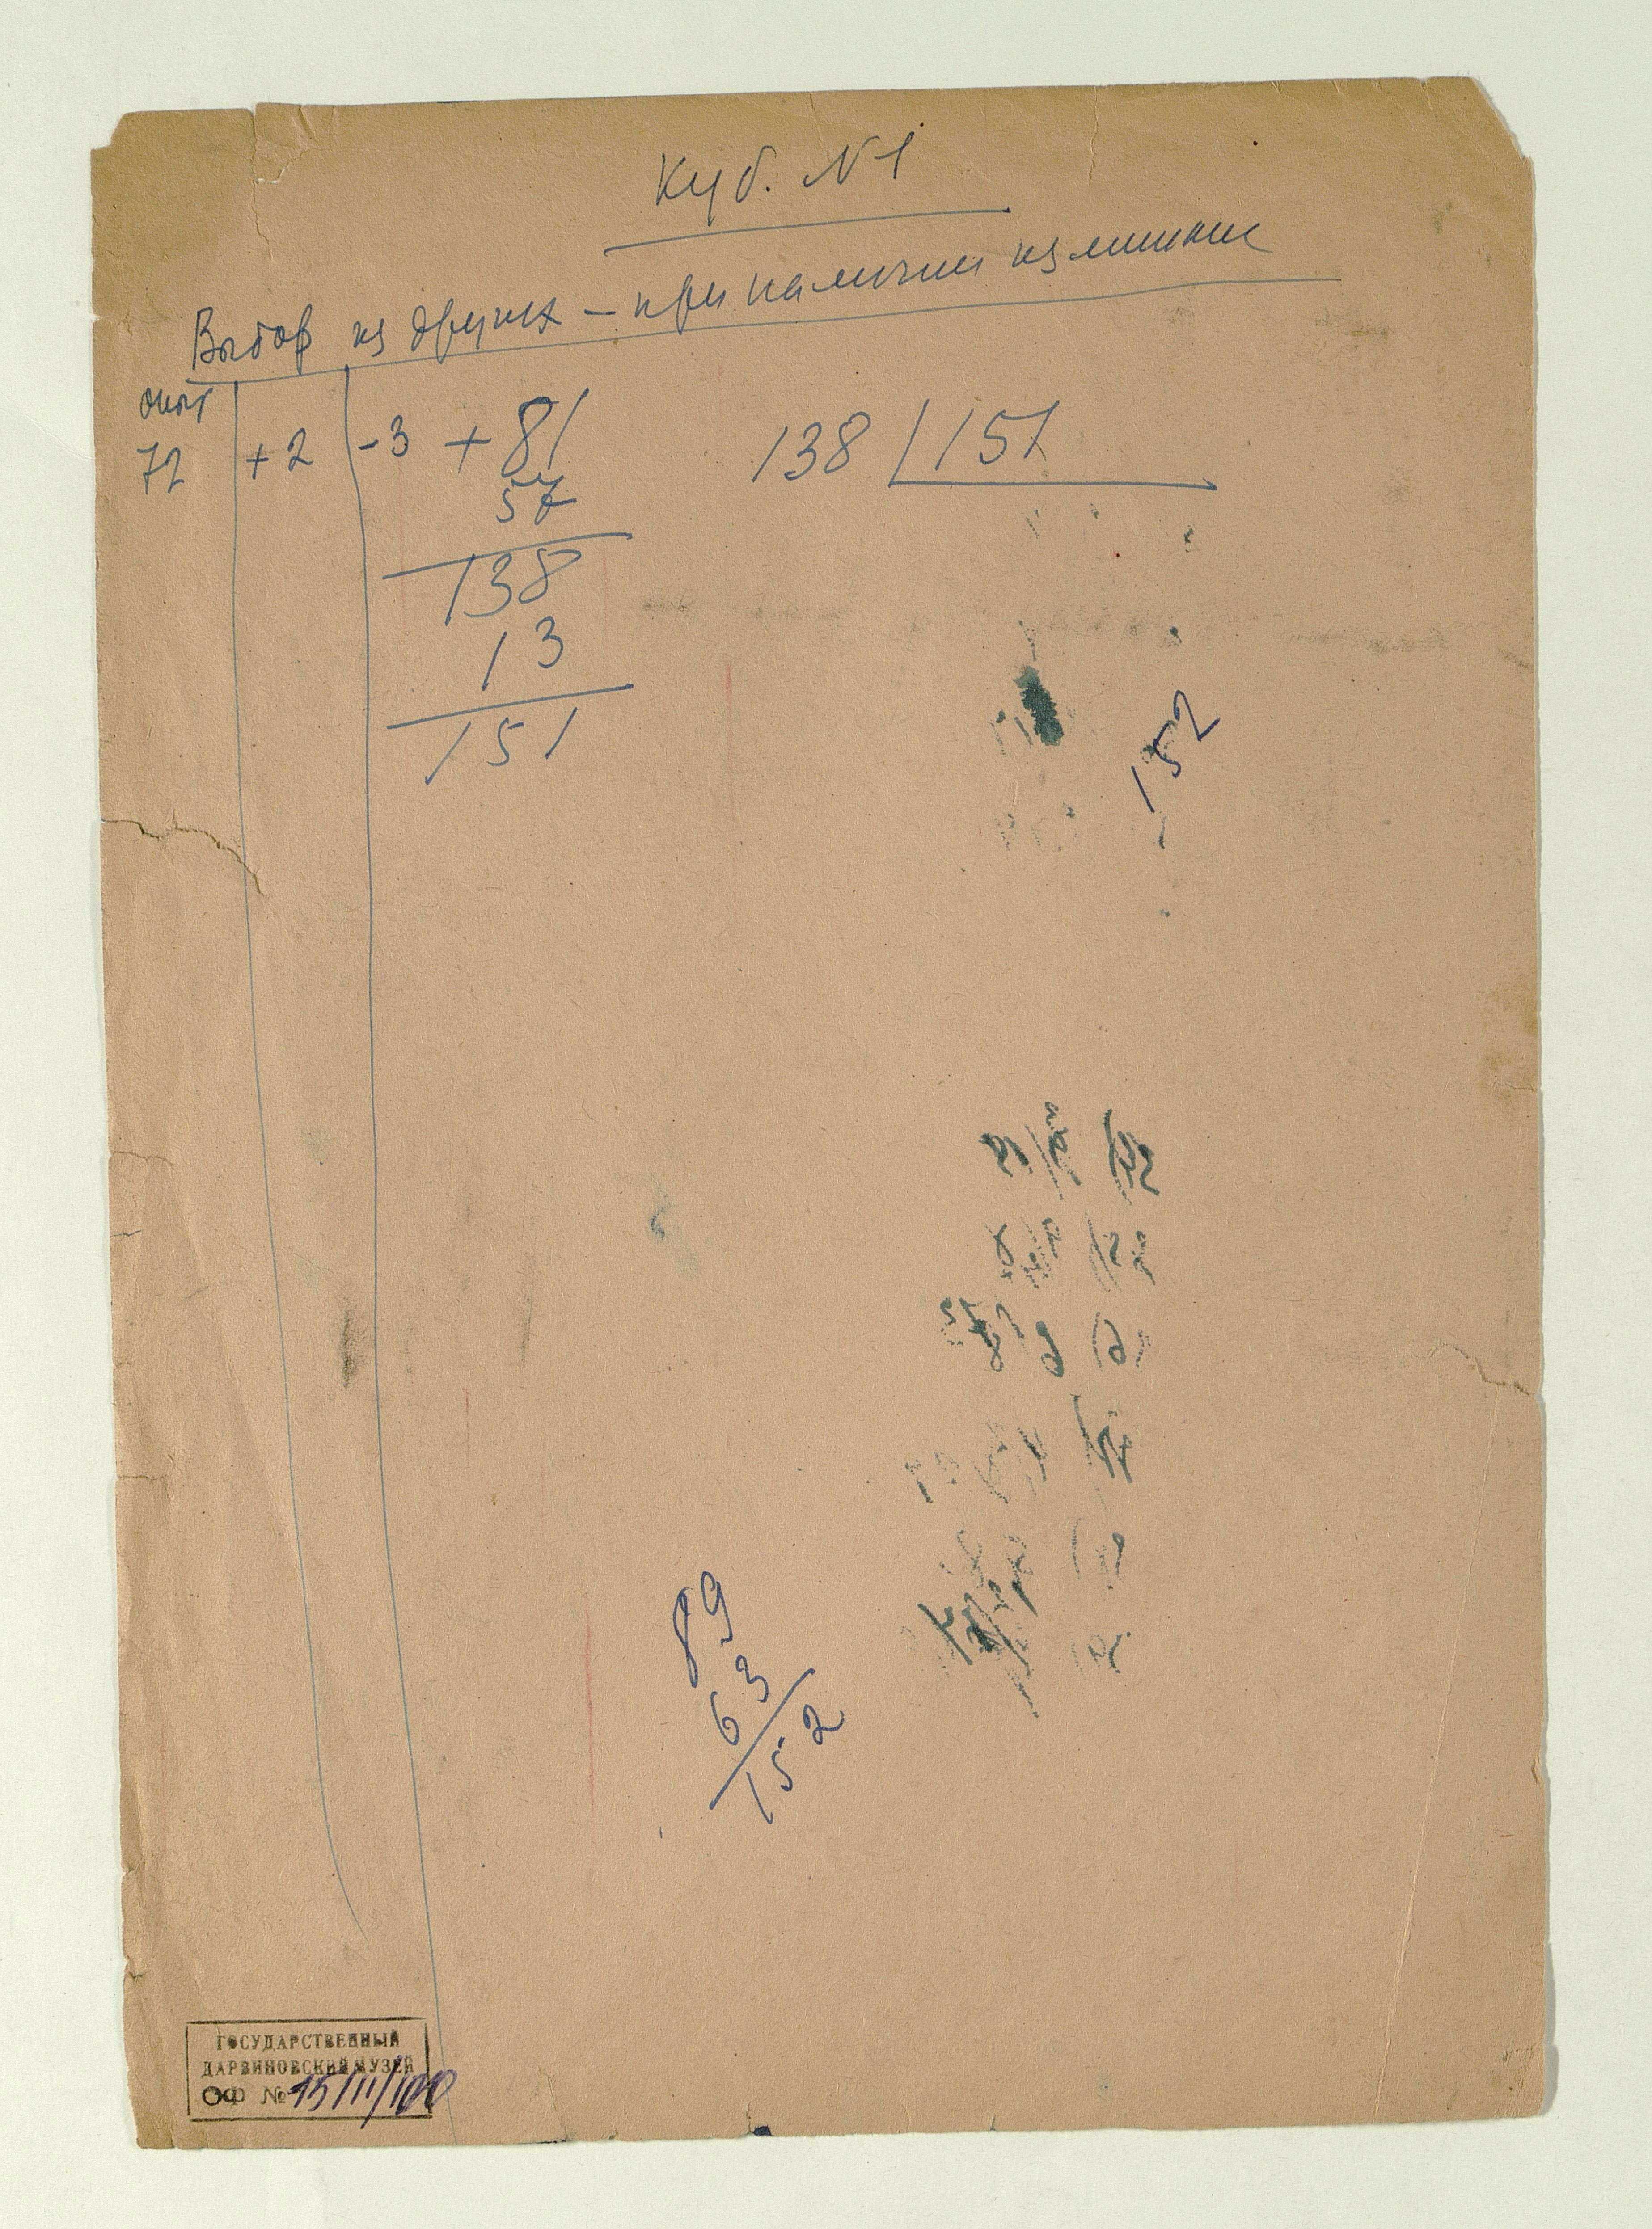 Куб. N1
Выбор из других – при наличии излишние
опыт
72 +2 -3 + 81 138 151
57
138
13
151
152
89
63
152
ГОСУДАРСТВЕННЫЙ
ДАРВИНОВСКИЙ МУЗЕЙ
ОФ № 15/11/100